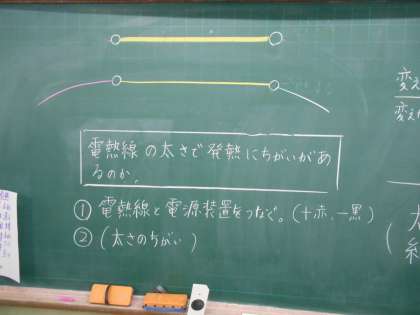 電熱線の太さで発熱にちがいがあ
るのか。
① 電熱線と電源装置をつなぐ。(+赤、-黒)
② (太さのちがい)
変え
変え